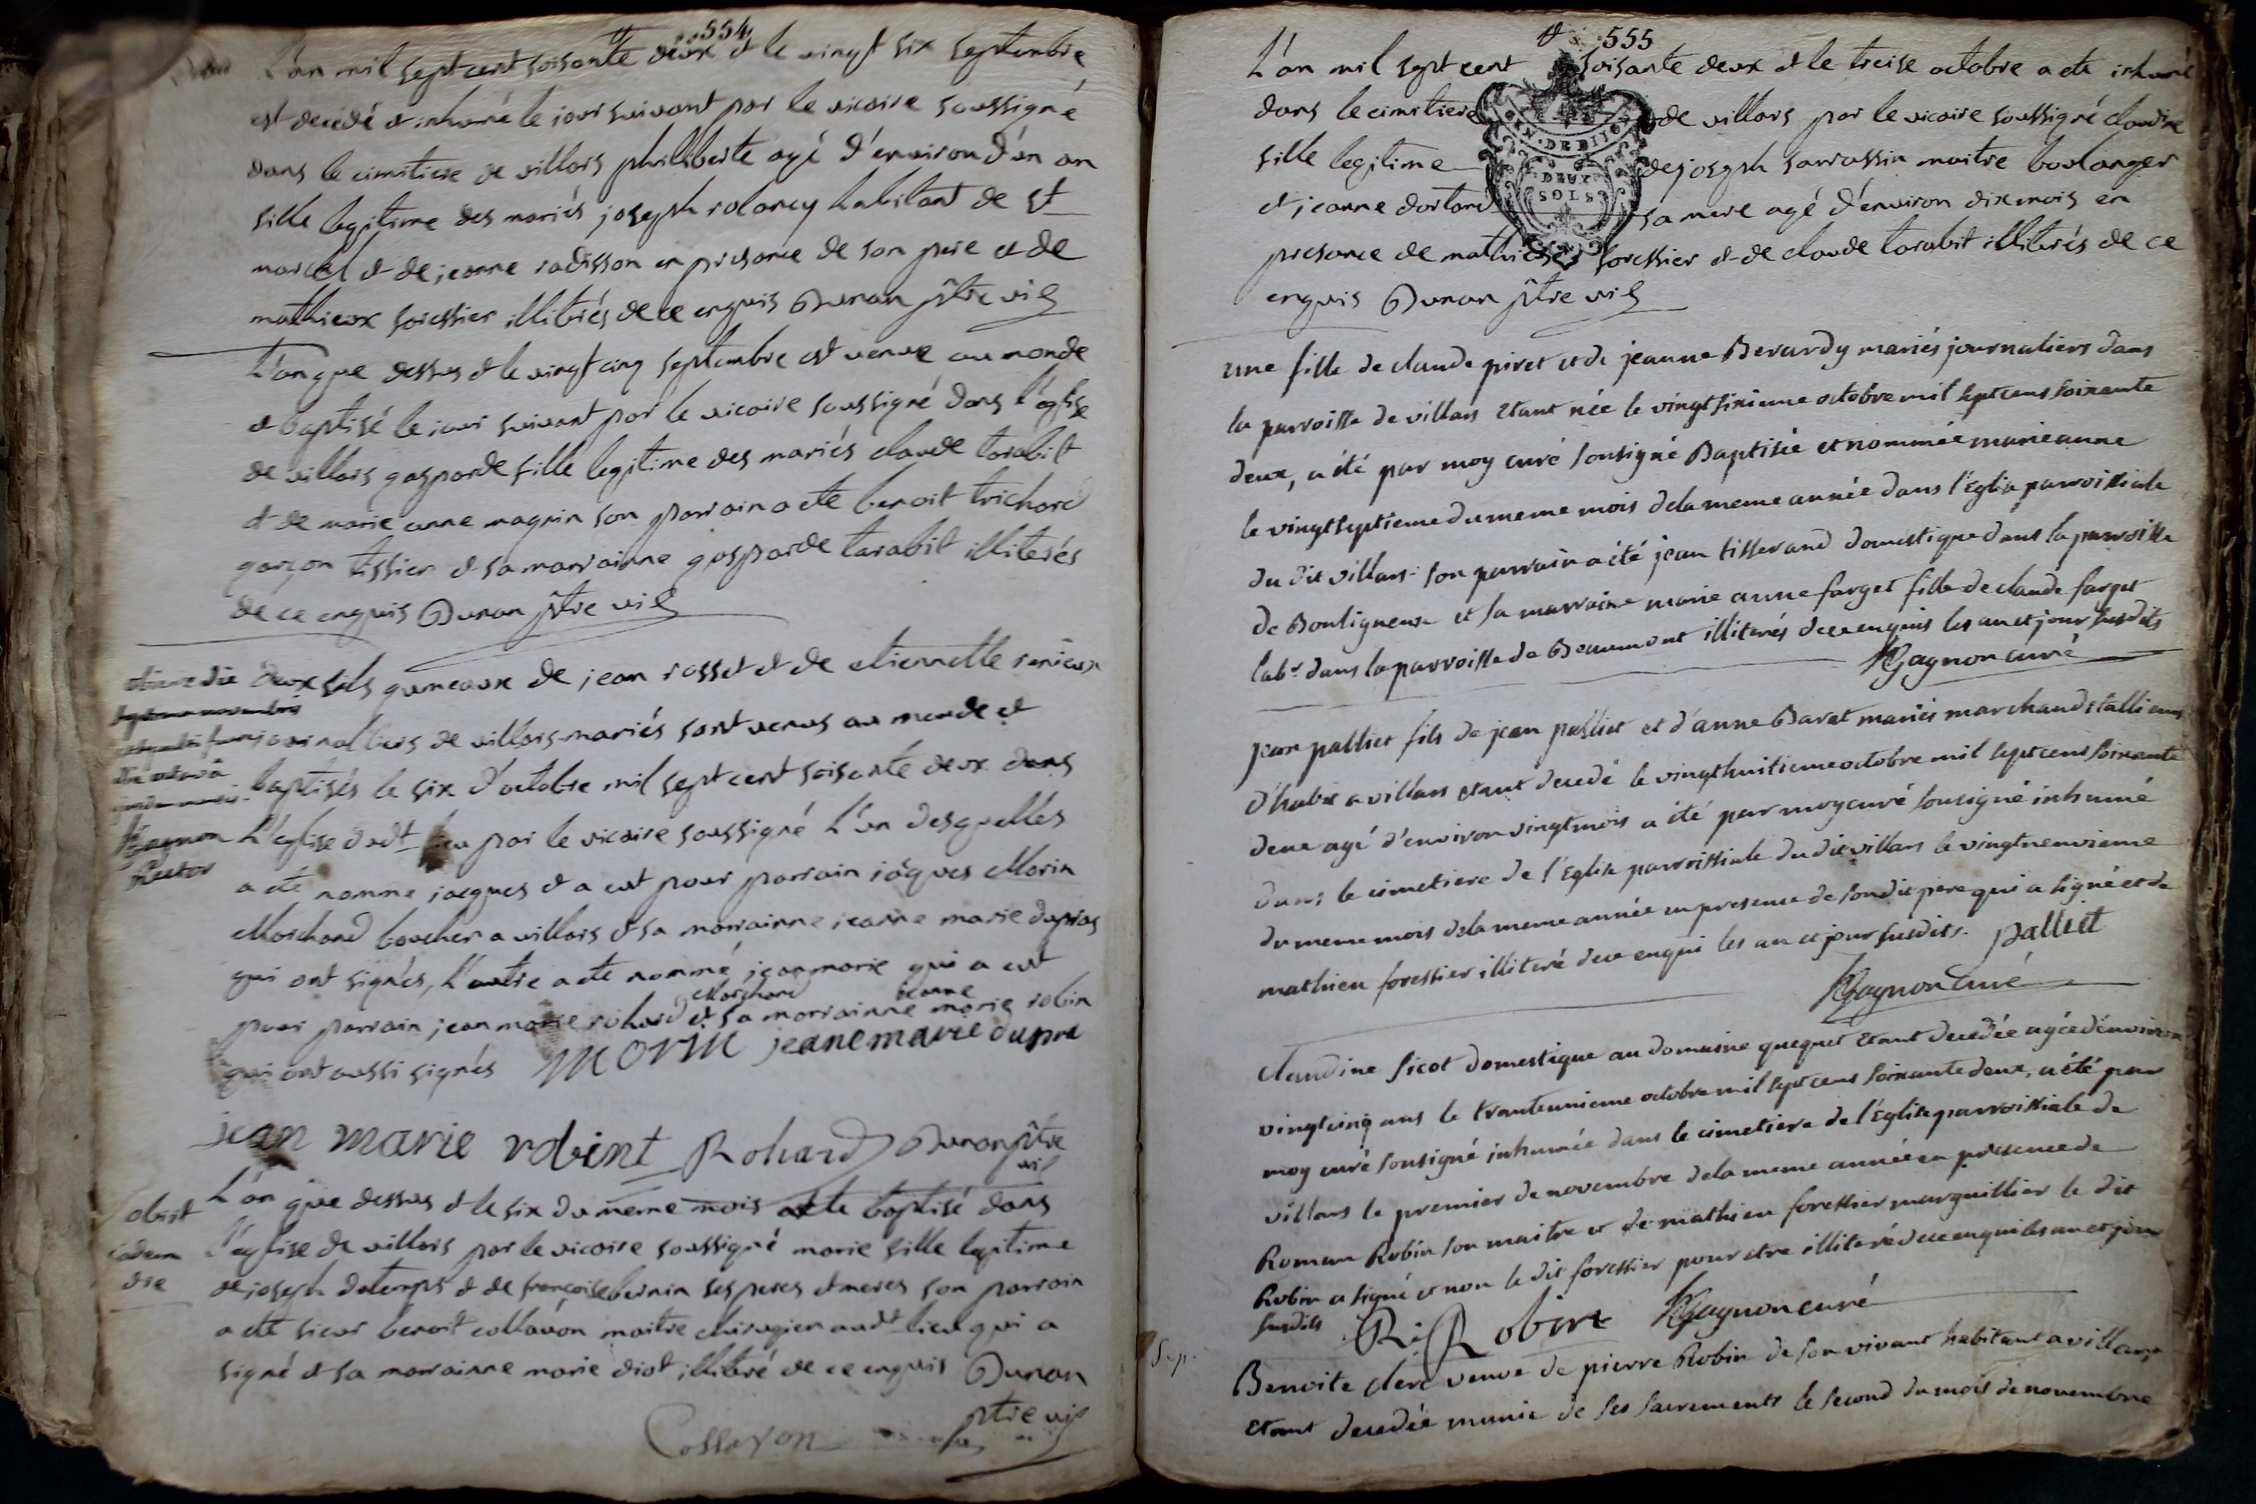 554
L'an mil sept cent soisante deux et le vingt six septembre
est decedé et inhumé le jour suivant par le vicaire soussigné
dans le cimitiere de villars philiberte agé d'environ d'un an
fille legitime des mariés joseph rolancy habitant de St
marcel et de jeanne radisson en presance de son pere et de
mathieux foressier illitérés de ce enquis Dunan ptre vic
L'an que dessus et le vingt cinq septembre est venue au monde
et baptisé le jour suivant par le vicaire soussigné dans l'eglise
de villars gasparde fille legitime des mariés claude tarabit
et de marie anne magnin son parrain a été benoit trichard
garçon tissier et sa marrainne gasparde tarabit illiterés
de ce enquis Dunan ptre vic
deux fils gumeaux de jean rosset et de etiennette
journalliers de villars mariés sont venus au monde et
baptisés le six d'octobre mil sept cent soisante deux dans
L'eglise dudt lieu par le vicaire soussigné L'un desquelles
a été nommé jacques et a eut pour parrain jâques Morin
Marchand boucher a villars et sa marrainne jeanne marie dupras
qui ont signés, L'autre a été nommé jean marie qui a eut
Marchand jeanne
pour parrain jean marie rohard et sa marrainne marie robin
qui ont aussi signés MORIN jeane marie dupre
Gagnon
Rector
jean marie robint Rohard Dunan ptre
vic
L'an que dessus et le six du même mois a été baptisé dans
l'eglise de villars par le vicaire soussigné marie fille legitime
de joseph detemps et de françoise bernin ses peres et meres son parrain
a été sieur benoit collavon maitre chirugien audt lieu qui a
signé et sa marrainne marie diot illitéré de ce enquis Dunan
ptre vic
Collavon
obiit
eadem
die
555
L'an mil sept cent soisante deux et le treise octobre a été inhumé
dans le cimitiere de villars par le vicaire soussigné claudine
fille legitime de joseph sarrassin maitre boulanger
et jeanne sa mere agé d'environ dix mois en
presance de mathieux foressier et de claude tarabit illiterés de ce
enquis Dunan ptre vic
une fille de claude piret et de jeanne Berardy mariés journaliers dans
la parroisse de villars étant née le vingt sixieme octobre mil sept cens soixante
deux, a été par moy curé sousigné Baptisée et nommée marieanne
le vingt septieme du meme mois de la meme année dans l'Eglise parroissiale
du dit villars. son parrain a été jean tisserand domestique dans la parroisse
de Bouligneux et sa marraine marie anne farget fille de claude farget
labr. dans la parroisse de Beaumont illiterés de ce enquis les an et jour susdits
Gagnon curé
jean palliet fils de jean palliet et d'anne Barat mariés marchands
d'habit a villars étant decedé le vingt huitieme octobre mil sept cens soixante
deux agé d'environ vingt mois a été par moy curé sousigné inhumé
dans le cimetiere de l'Eglise parroissiale du dit villars le vingt neuvieme
du meme mois de la meme année en presence de son dit pere qui a signé et de
mathieu foressier illiteré de ce enqui les an et jour susdits. palliet
Gagnon Curé
Claudine sicot domestique au domaine quequet étant decedée agée d'environ
vingt cinq ans le trante unieme octobre mil sept cens soixante deux, a été par
moy curé sousigné inhumée dans le cimetiere de l'Eglise parroissiale de
villars le premier de novembre de la meme année en presence de
Romain Robin son maitre et de mathieu foressier marguillier le dit
Robin a signé et non le dit foressier pour etre illiteré de ce enquis les an et jour
susdits R. Robin Gagnon curé
Sep.
Benoite clerc veuve de pierre Robin de son vivant habitant a villars
étant decedée munie de ses sacrements le second du mois de novembre